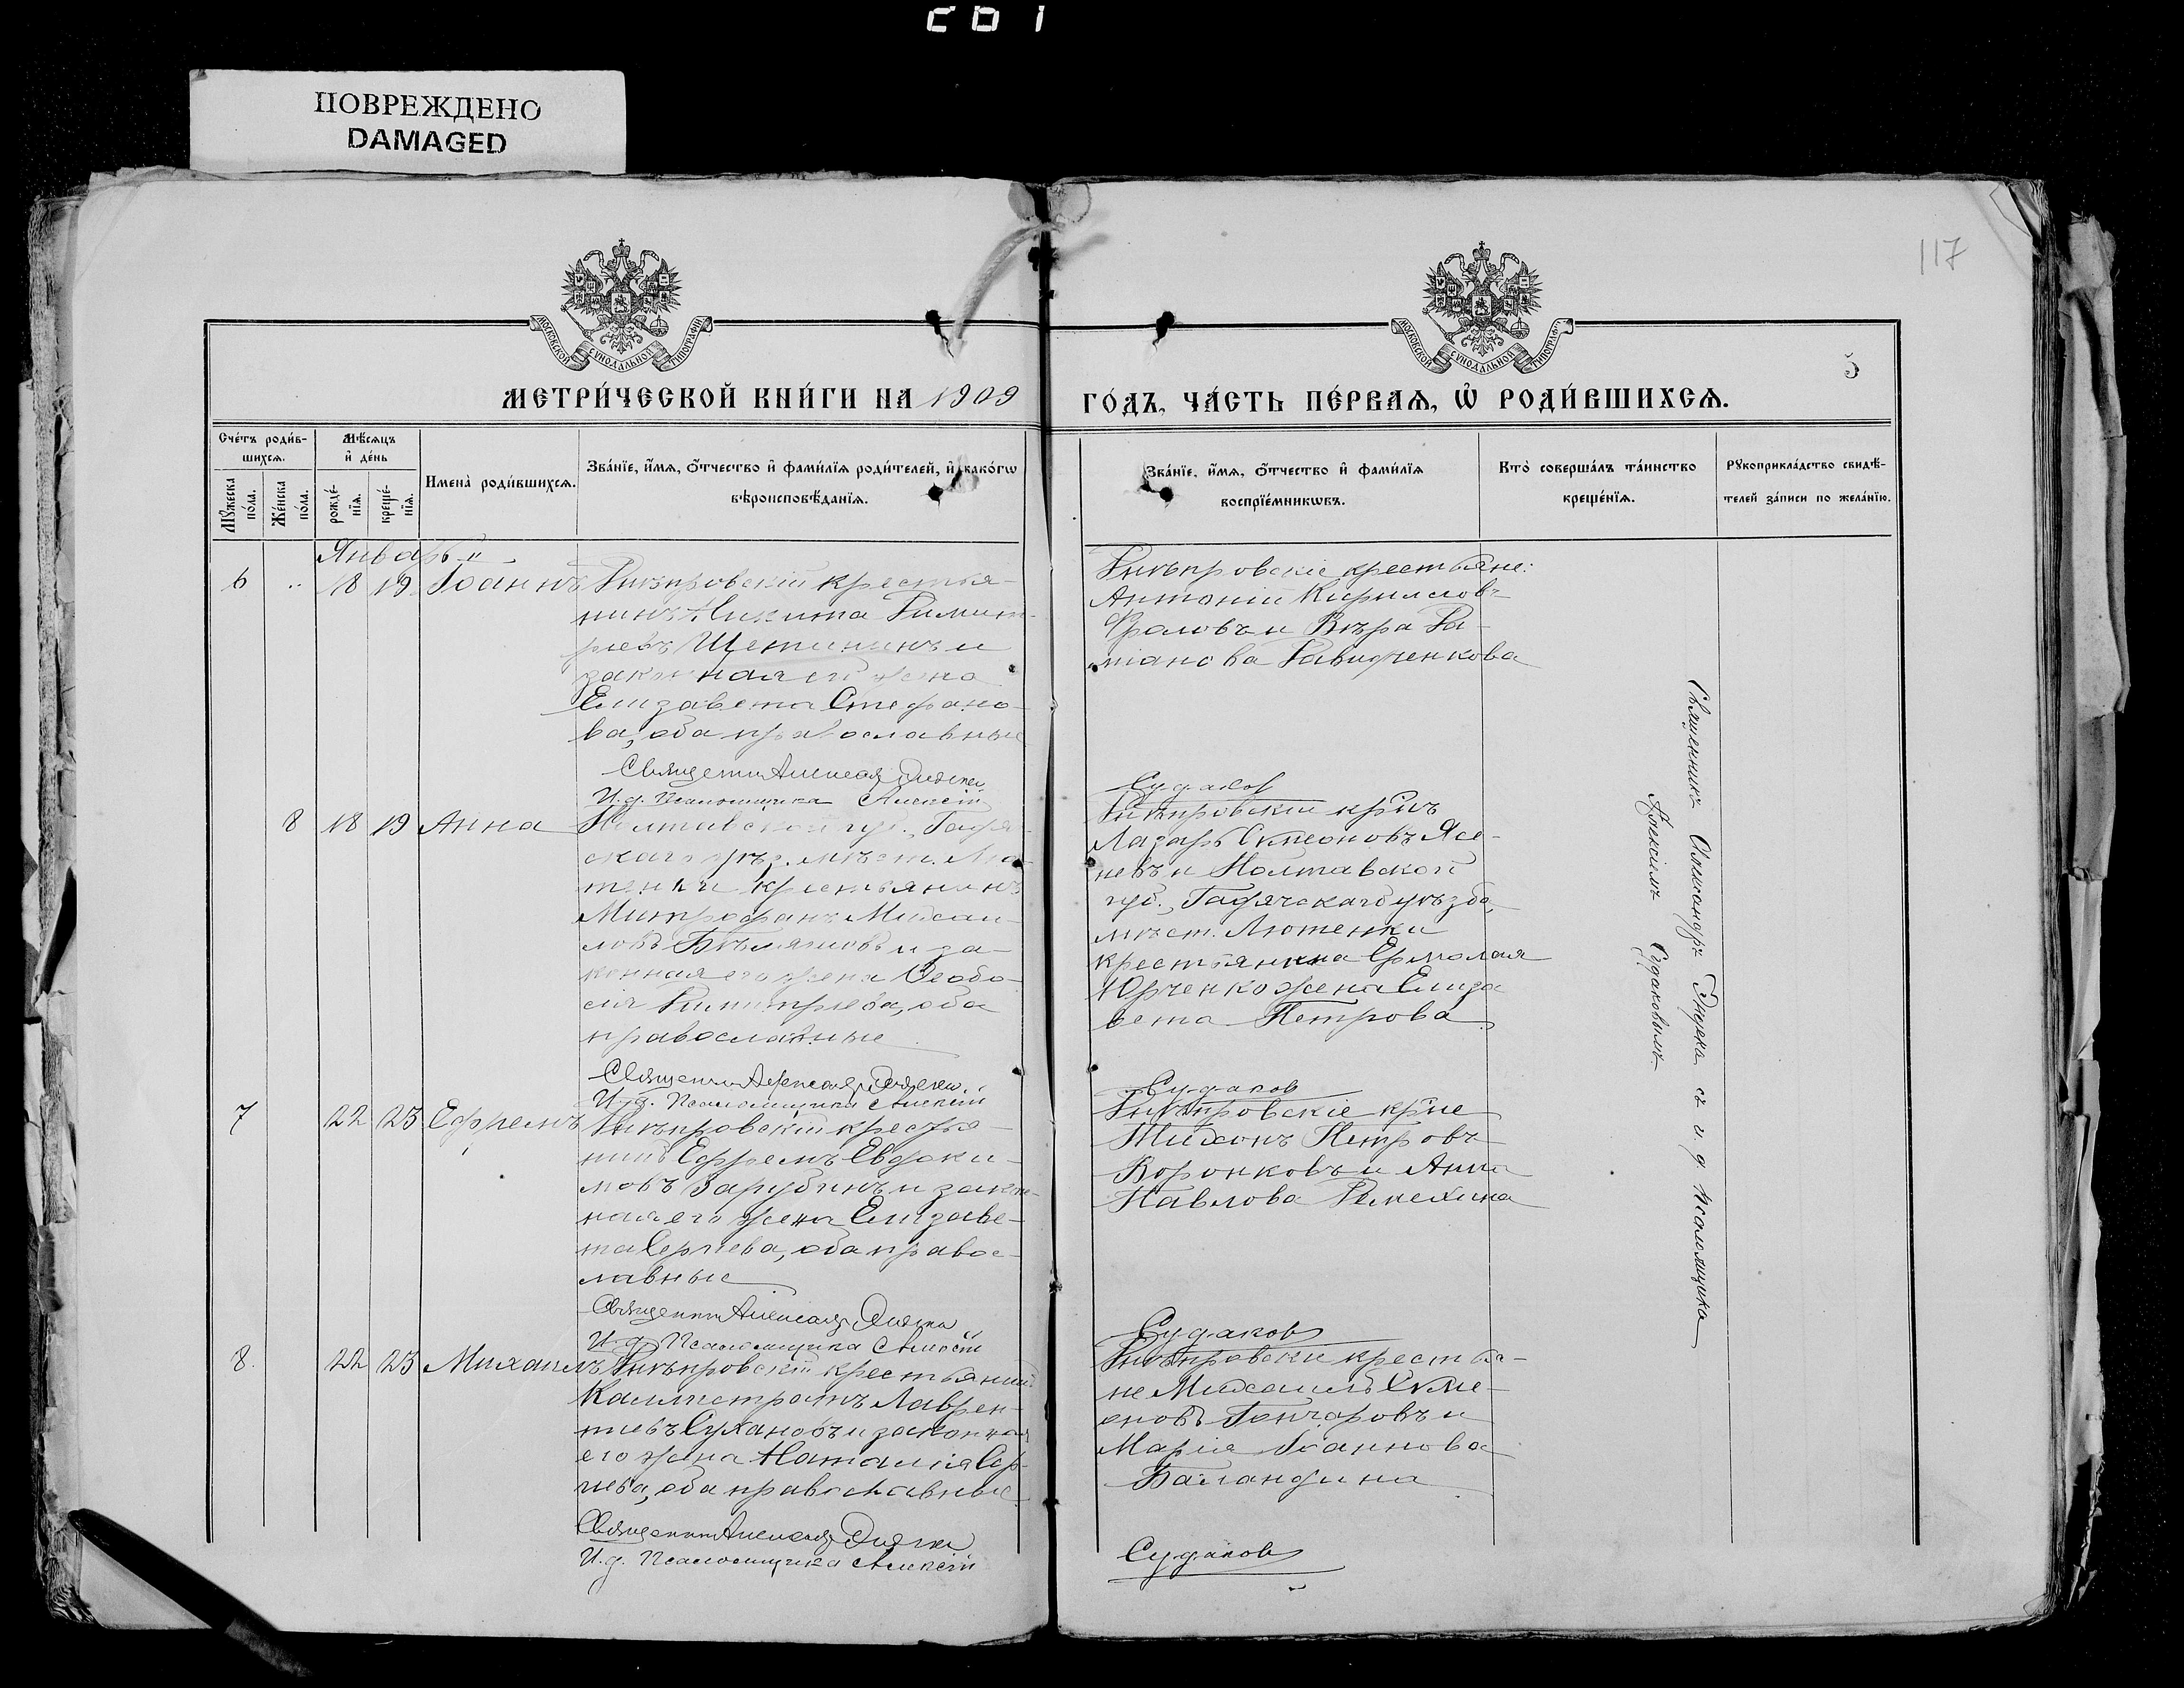 ПОВРЕЖДЕНО
DAMAGED
117
МОСКОВСКОЙ СУНОДАЛЬНОЙ ТИПОГРАФІИ
МОСКОВСКОЙ СУНОДАЛЬНОЙ ТИПОГРАФІИ
5
МЕТРИ́ЧЕСКОЙ КНИ́ГИ НА 1909
ГО́ДЪ, ЧА́СТЬ ПЕ́РВАѦ, Ѡ҆ РОДИ́ВШИХСѦ.
Сче́тъ роди́в-
шихсѧ.
Мꙋ́жеска по́ла.
Же́нска по́ла.
Мѣ́сѧцъ
и҆ де́нь
рожде́-
нїѧ.
креще́-
нїѧ.
Имена̀ роди́вшихсѧ.
Зва́нїе, и҆́мѧ, ѻ҆́тчество и҆ фами́лїѧ роди́телей, и҆ како́гѡ
вѣроисповѣ́данїѧ.
Зва́нїе, и҆́мѧ, ѻ҆́тчество и҆ фами́лїѧ
воспрїе́мникѡвъ.
Кто̀ соверша́лъ та́инство
креще́нїѧ.
Рꙋкоприкла́дство свидѣ́-
телей за́писи по жела́нїю.
Январь
6 18 19 Іоаннъ Днѣпровскій крестья-
нинъ Никита Димит-
ріевъ Щетининъ и
законная его жена
Елизавета Стефано-
ва, оба православные
Священникъ Александръ
И. д. Псаломщика Алексій
Днѣпровскіе крестьяне:
Антоній Кириллов
Фроловъ и Вѣра Да-
міанова Давидченкова
Судаков
8 18 19 Анна Полтавской губ., Гадяч-
скаго уѣз. мѣст. Лю-
теньки крестьянинъ
Митрофанъ Михаи-
ловъ и за-
конная его жена Ѳеодо-
сія Димитріева, оба
православные
Священникъ Александръ
И. д. Псаломщика Алексій
Днѣпровскій кр-нъ
Лазарь Симеоновъ Ясе-
невъ и Полтавской
губ., Гадячскаго уѣзда,
мѣст. Лютеньки
крестьянина Ермолая
Юрченко жена Елиза
вета Петрова
Судаков
7 22 23 Ефремъ Днѣпровскій крестья-
нинъ Ефремъ Евдоки-
мовъ Зарубинъ и закон-
ная его жена Елизаве-
та Сергіева, оба правос-
лавные
Священникъ Александръ
И. д. Псаломщика Алексій
Днѣпровскіе кр-не
Тихонъ Петровъ
Воронковъ и Анна
Павлова
Судаков
8 22 23 Михаилъ Днѣпровскій крестьянинъ
Каллистратъ Лаврен-
тіевъ Сухановъ и законная
его жена Наталія Сер-
гіева, оба православные
Священникъ Александръ
И. д. Псаломщика Алексій
Днѣпровскіе крестья-
не Михаилъ Симе-
оновъ Гончаровъ и
Марія Іоаннова
Баландина
Судаков
Священникъ Александръ съ и. д. псаломщика
Алексіемъ Судаковымъ